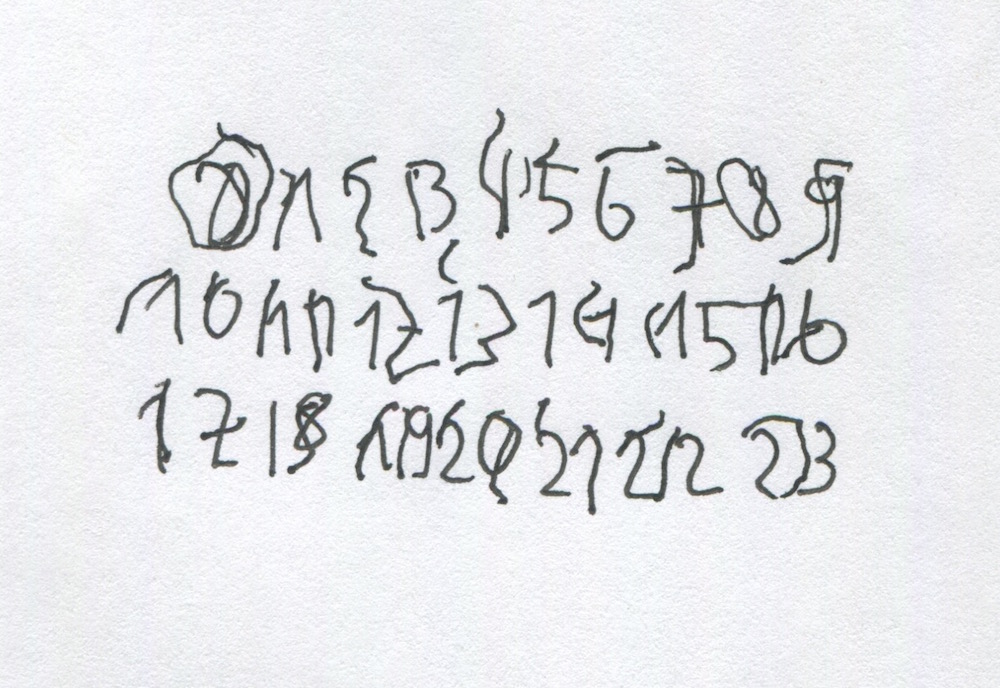 0 1 2 3 4 5 6 7 8 9
10 11 12 13 14 15 16
17 18 19 20 21 22 23